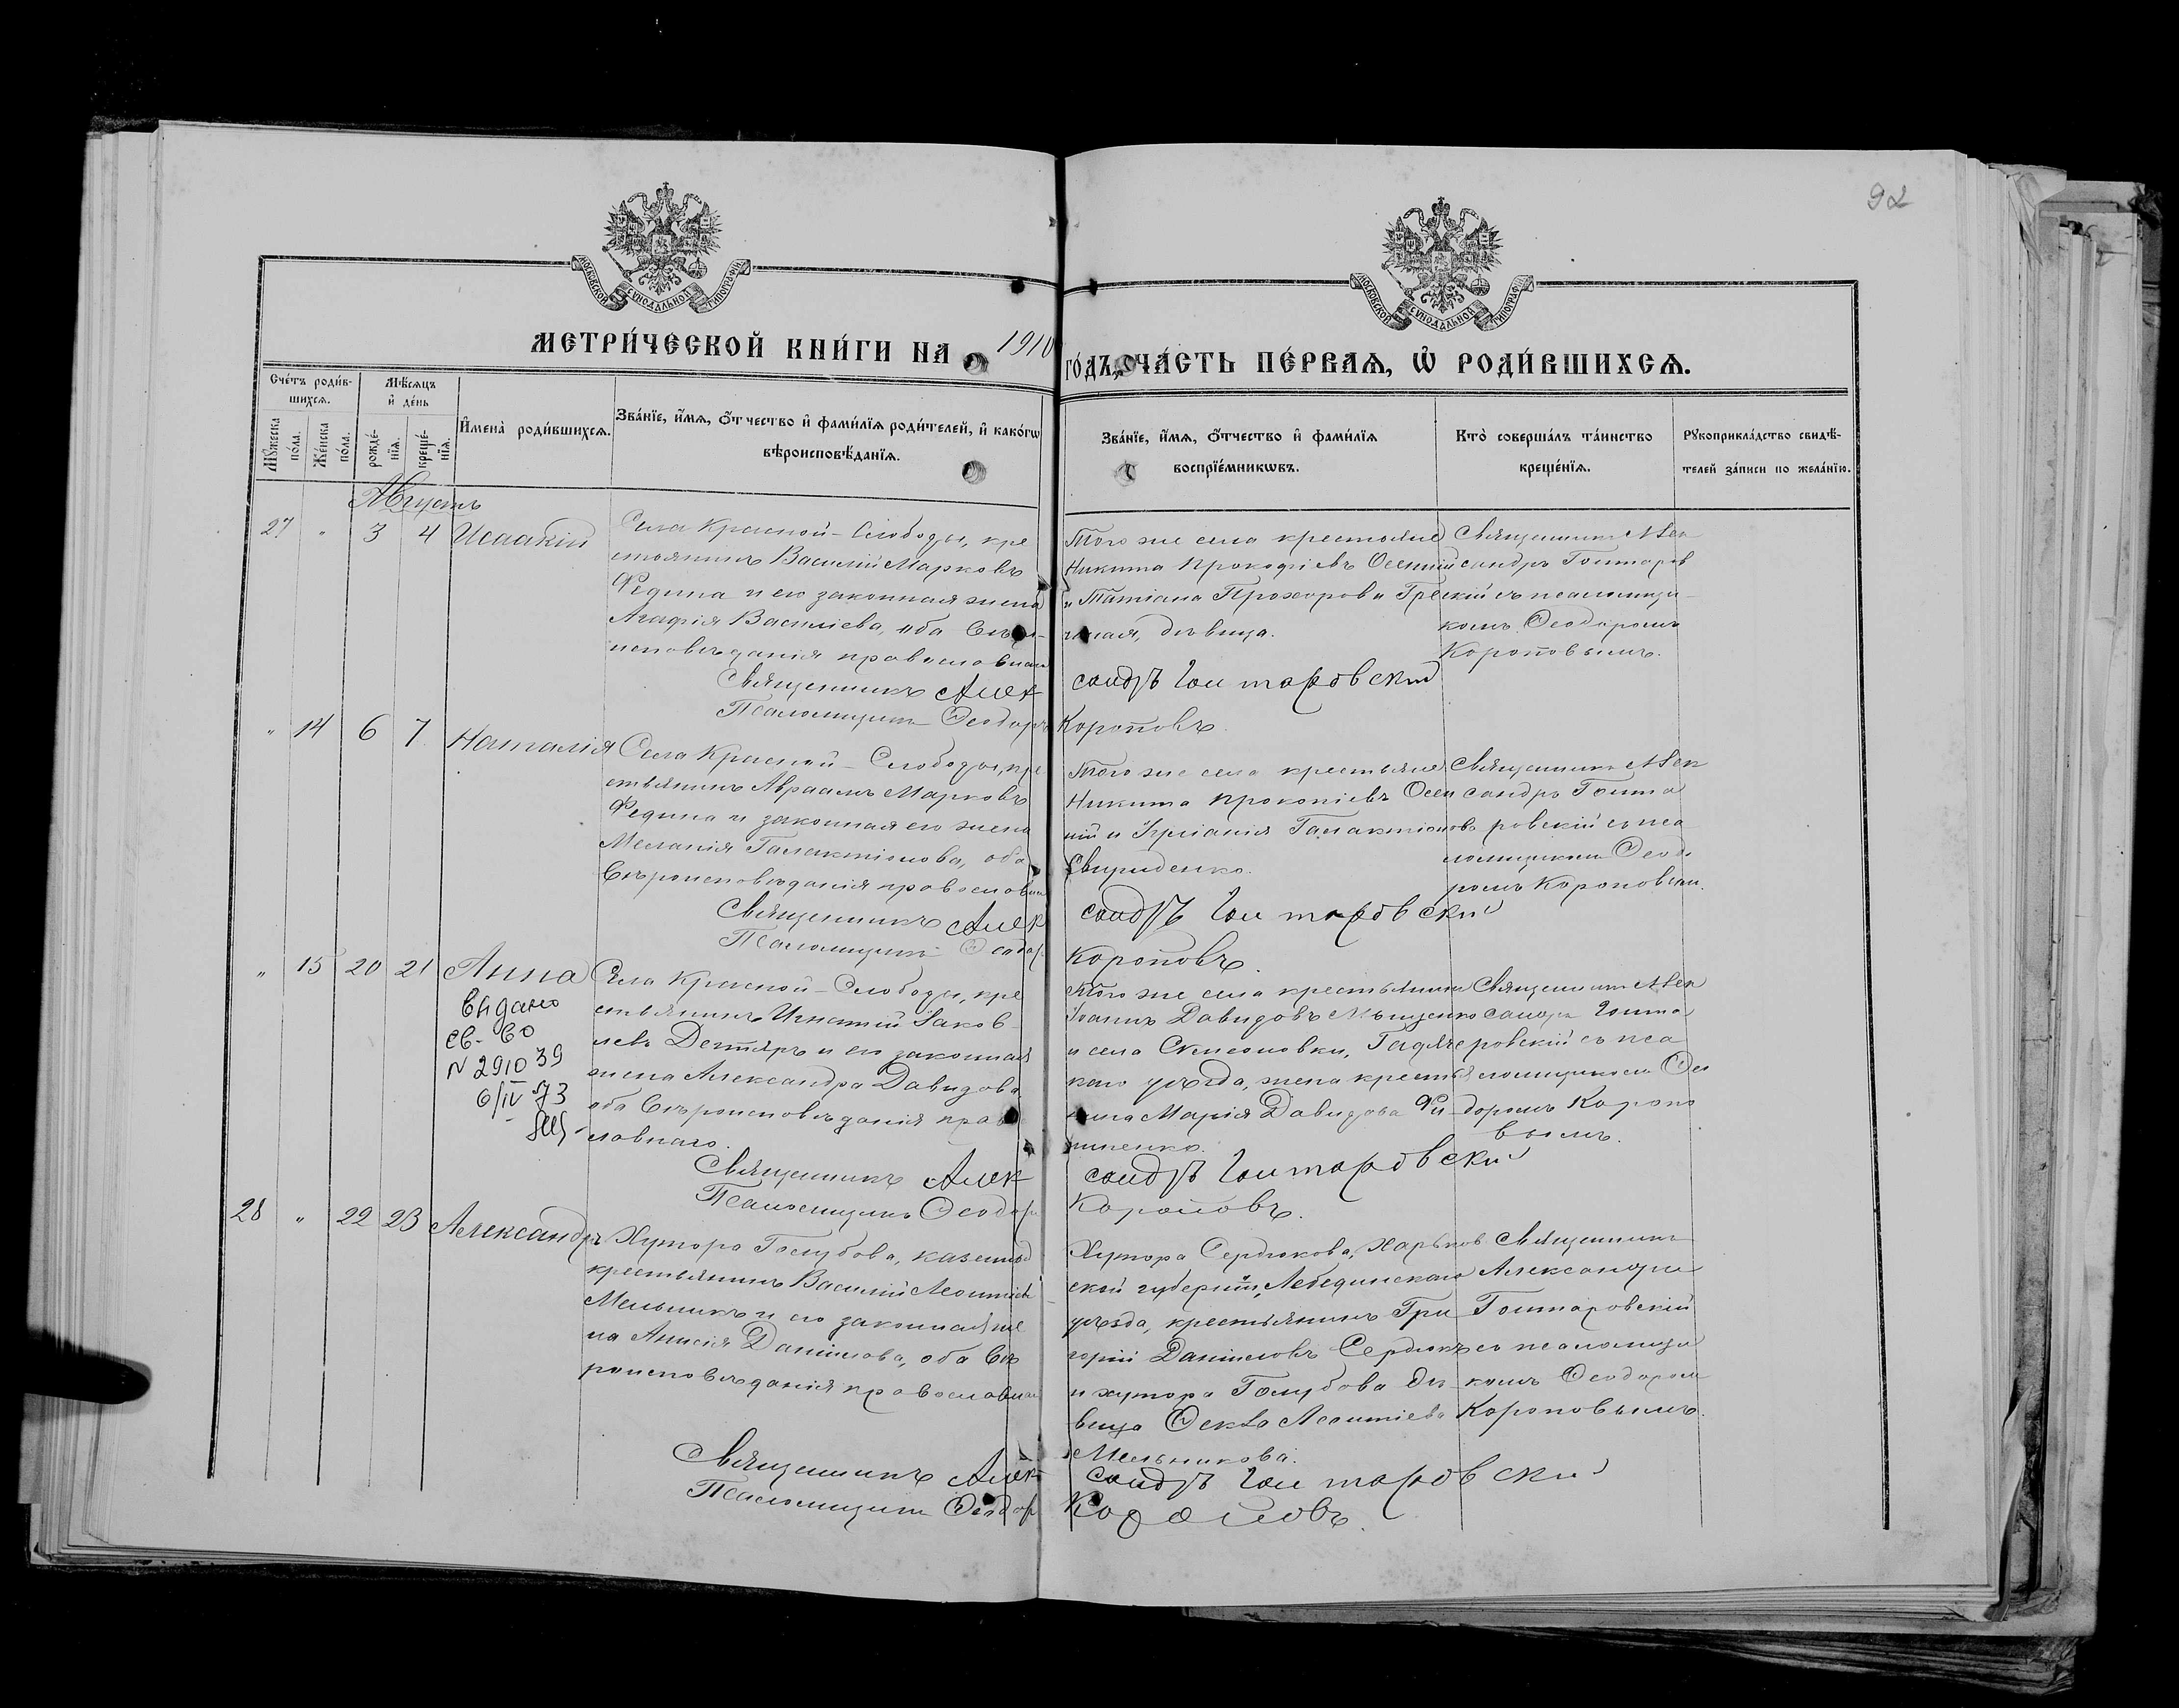 92
МОСКОВСКОЙ СУНОДАЛЬНОЙ ТИПОГРАФІИ
МОСКОВСКОЙ СУНОДАЛЬНОЙ ТИПОГРАФІИ
МЕТРИ́ЧЕСКОЙ КНИ́ГИ НА 1910 ГО́ДЪ, ЧА́СТЬ ПЕ́РВАѦ, Ѡ҆ РОДИ́ВШИХСѦ.
Сче́тъ роди́в-
шихсѧ.
Мꙋ́жеска по́ла.
Же́нска по́ла.
Мѣ́сѧцъ
и҆ де́нь
рожде́-
нїѧ.
креще́-
нїѧ.
И҆мена̀ роди́вшихсѧ.
Зва́нїе, и҆́мѧ, ѻ҆́тчество и҆ фами́лїѧ роди́телей, и҆ како́гѡ
вѣроисповѣ́данїѧ.
Зва́нїе, и҆́мѧ, ѻ҆́тчество и҆ фами́лїѧ
воспрїе́мникѡвъ.
Кто̀ соверша́лъ та́инство
креще́нїѧ.
Рꙋкоприкла́дство свидѣ́-
телей за́писи по жела́нїю.
Августъ
27 " 3 4 Исаакій
Села Красной-Слободы, кре
стьянинъ Василій Марковъ
Федина и его законная жена
Агафія Васильева, оба вѣро-
исповѣданія православнаго
Того же села крестьяне
Никита Прокофіевъ Осенній
и Татіана Прохорова Гре
чаная, дѣвица.
Священникъ Алек
сандръ Гонтаров
скій съ псаломщи-
комъ Ѳеодоромъ
Короповымъ.
Священникъ Александръ Гонтаровскій
Псаломщикъ Ѳеодоръ Короповъ.
" 14 6 7 Наталія
Села Красной-Слободы, кре
стьянинъ Авраамъ Марковъ
Федина и законная его жена
Меланія Галактіонова, оба
вѣроисповѣданія православн
Того же села крестьяне
Никита Прокопіевъ Осен
ній и Іуліанія Галактіонова
Свириденко.
Священникъ Алек
сандръ Гонта
ровскій съ пса
ломщикомъ Ѳеодо
ромъ Короповым.
Священникъ Александръ Гонтаровскій
Псаломщикъ Ѳеодоръ Короповъ.
" 15 20 21 Анна
видано
св-во
N 291039
6/IV 73
Села Красной-Слободы, кре
стьянинъ Игнатій Іаков-
левъ Дегтяръ и его законная
жена Александра Давидова
оба вѣроисповѣданія право
славнаго.
Того же села крестьянинъ
Іоаннъ Давидовъ
и села Гадяч
каго уѣзда, жена крестья
нина Марія Давидова Фи-
Священникъ Алек
сандръ Гонта
ровскій съ пса
ломщикомъ Ѳео
доромъ Коропо
вымъ.
Священникъ Александръ Гонтаровскій
Псаломщикъ Ѳеодоръ Короповъ.
28 " 22 23 Александръ
Хутора Голубова, казенный
крестьянинъ Василій Леонтіев
Мельникъ и его законная же
на Анисія Даніилова, оба вѣ
роисповѣданія православнаго
Хутора Сердюкова, Харьков
ской губерніи, Лебединскаго
уѣзда, крестьянинъ Гри
горій Даніиловъ Сердюкъ
и хутора Голубова дѣ-
вица Ѳекла Леонтіева
Мельникова.
Священникъ
Александръ
Гонтаровскій
съ псаломщи
комъ Ѳеодором
Короповымъ.
Священникъ Александръ Гонтаровскій
Псаломщикъ Ѳеодоръ Короповъ.